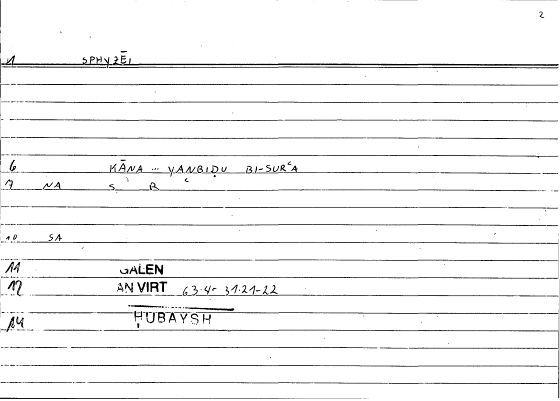 2
1 SPHYZĒI
6 KĀNA ... YANBIḌU BI-SURʿA
7 NA S R ʿ
10 SA
11 GALEN
12 AN VIRT 63.4- 31.21-22
14 ḤUBAYSH